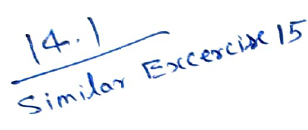 14.1
Similar Excercise 15